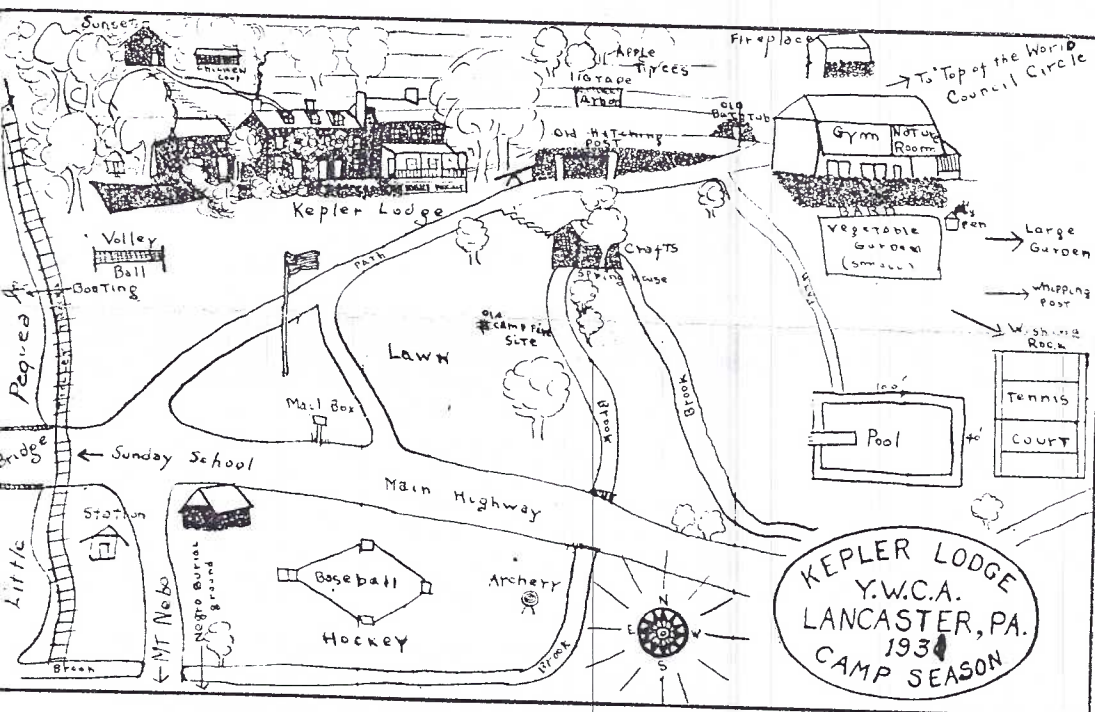 Sunset
Chicken
Coop
Apple
Trees
Grape
Arbor
Fireplace
To "Top of the World
Council Circle
Old
Bathtub
Old Hitching
Post
Gym
Nature
Room
Kepler Lodge
BARN
Vegetable
Garden
(small)
Pig
Pen
Large
Garden
Whipping
Post
Wishing
Rock
Volley
Ball
Boating
Path
Crafts
Spring House
Path
Old
Camp Fire
Site
Lawn
Pequea
Trolley
Mail Box
Brook
Brook
100'
Pool
40'
Tennis
Court
Bridge
← Sunday School
Main Highway
Station
Little
Mt Nebo
Negro Burial
ground
Baseball
Hockey
Archery
Brook
Brook
N
E W
S
KEPLER LODGE
Y.W.C.A.
LANCASTER, PA.
CAMP SEASON